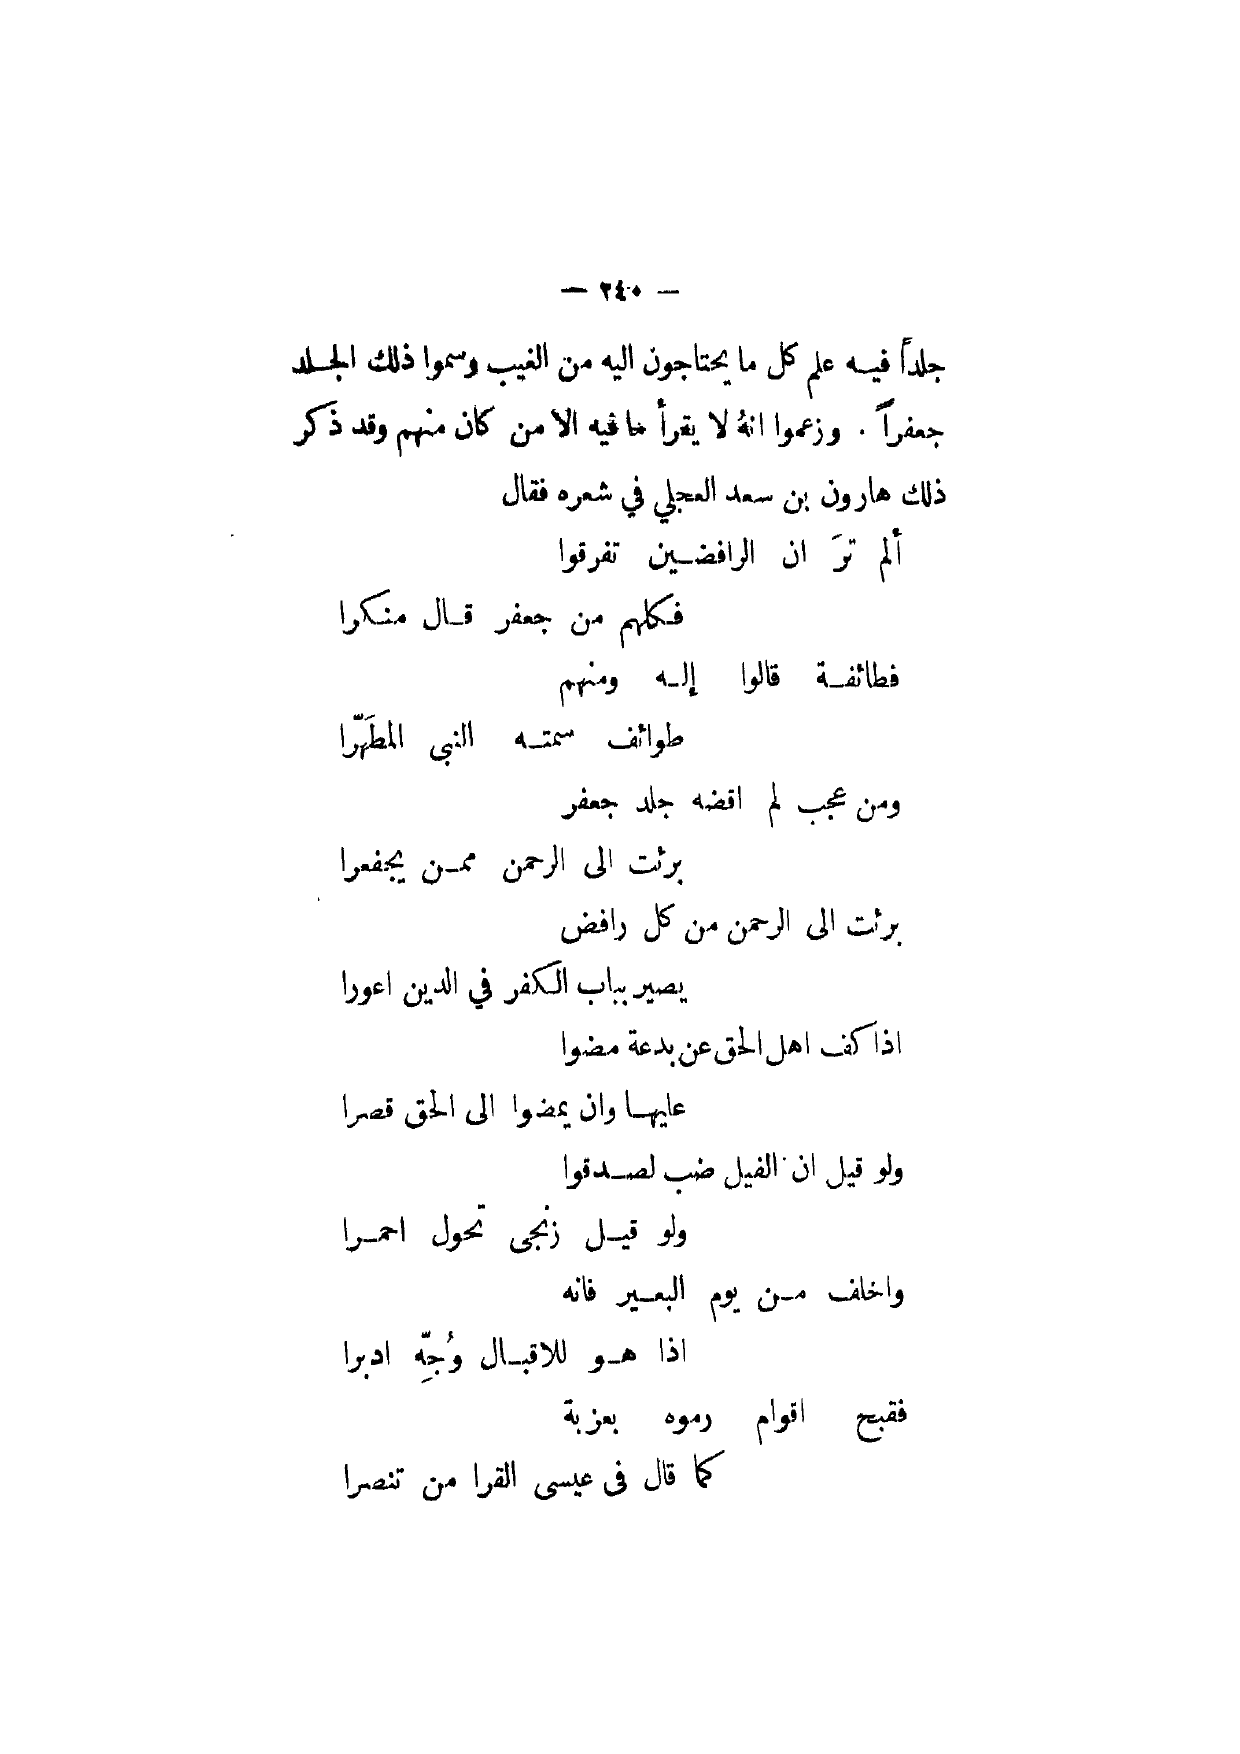 — ٢٤٠ —
جلداً فيه علم كل ما يحتاجون اليه من الغيب وسموا ذلك الجلد
جعفراً . وزعموا انهُ لا يقرأ ما فيه الا من كان منهم وقد ذكر
ذلك هارون بن سعد العجلي في شعره فقال
ألم ترَ ان الرافضين تفرقوا
فكلهم من جعفر قال منكرا
فطائفة قالوا إله ومنهم
طوائف سمته النبى المطهّرا
ومن عجب لم اقضه جلد جعفر
برئت الى الرحمن ممن يجفعرا
برئت الى الرحمن من كل رافض
يصير بباب الكفر في الدين اعورا
اذا كف اهل الحق عن بدعة مضوا
عليها وان يمضوا الى الحق قصرا
ولو قيل ان الفيل ضب لصدقوا
ولو قيل زنجى تحول احمرا
واخلف من يوم البعير فانه
اذا هو للاقبال وُجِّه ادبرا
فقبح اقوام رموه بعزبة
كما قال فى عيسى القرا من تنصرا